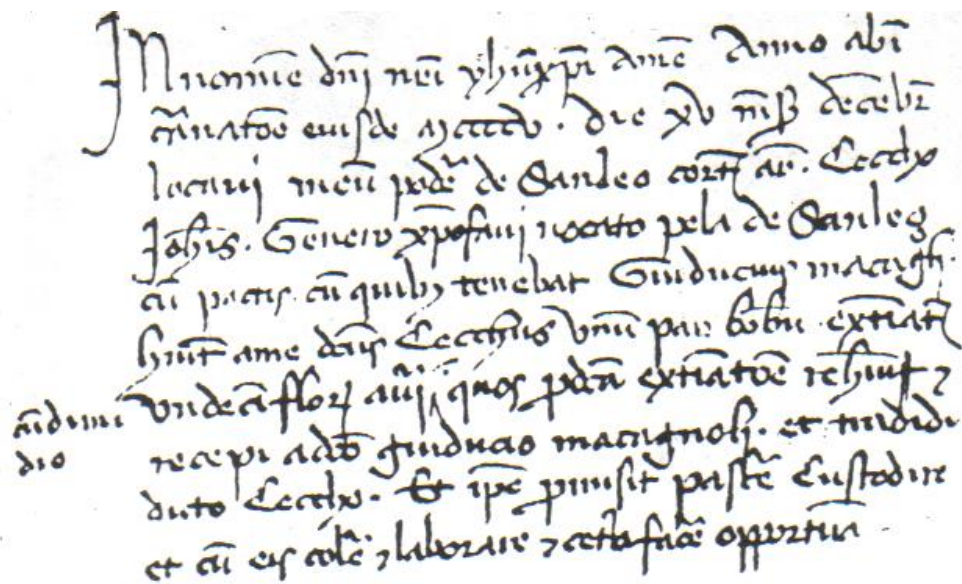 In nomine dñi nr̃i yhũ xp̃i Amẽ Anno ab ĩ
cr̃natoẽ eiusdẽ Mccccv. die xv mẽs̃ decẽbr̃
locaui meũ podẽ de Sanleo cort̃ ar̃. Ceccho
Joh̃is. Genero xp̃ofani uocato pela de Sanleo
cũ pactis cũ quibꝫ tenebat Guiduciuꝫ macagñ.
h̃uit a me dc̃us Cecchus vnũ par boũ extiat̃
vndecĩ florꝫ aur̃i quos p̃dc̃ã extĩatoẽ reh̃ui ⁊
cũ dimi
dio
recepi a dc̃o guiducio macagnoli. et tradidi
dicto Ceccho. Et ip̃e p̃misit pascẽ Custodire
et cũ eis colẽ ⁊ laborare ⁊ cet̃a facẽ opportũa